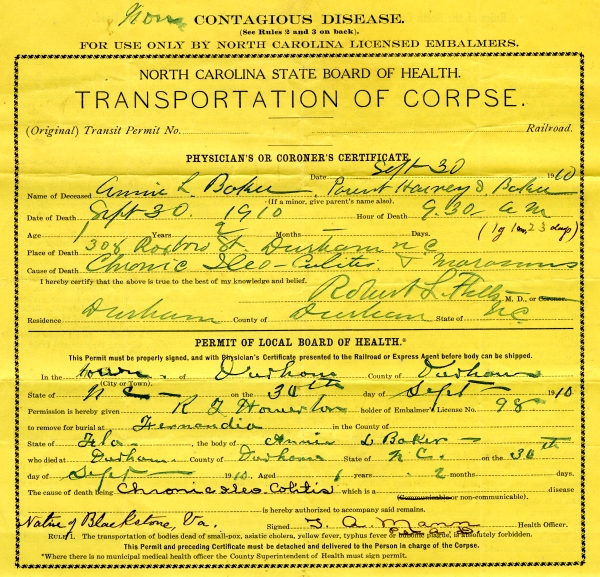 Non CONTAGIOUS DISEASE.
(See Rules 2 and 3 on back).
FOR USE ONLY BY NORTH CAROLINA LICENSED EMBALMERS.
NORTH CAROLINA STATE BOARD OF HEALTH.
TRANSPORTATION OF CORPSE.
(Original) Transit Permit No. Railroad.
PHYSICIAN'S OR CORONER'S CERTIFICATE
Date Sept 30 1910
Name of Deceased Annie L Baker, Parent Harvey D. Baker
(If a minor, give parent's name also).
Date of Death Sept 30. 1910 Hour of Death 9.30 A M
Age 1 Years 2 Months Days.
Place of Death 308 Roxboro St. Durham N C
Cause of Death Chronic Ileo-Colitis & Marasmus
I hereby certify that the above is true to the best of my knowledge and belief.
Robert L. M. D., or Coroner
Residence Durham County of Durham State of NC
PERMIT OF LOCAL BOARD OF HEALTH.*
This Permit must be properly signed, and with Physician's Certificate presented to the Railroad or Express Agent before body can be shipped.
In the town of Durham County of Durham
(City or Town).
State of N C on the 30th day of Sept 1910
Permission is hereby given R T Howerton holder of Embalmer's License No. 98
to remove for burial at Fernandia in the County of
State of Fla, the body of Annie L Baker
who died at Durham County of Durham State of N C. on the 30th
day of Sept 1910. Aged 1 years 2 months days.
The cause of death being Chronic Ileo Colitis which is a (Communicable or non-communicable). disease
is hereby authorized to accompany said remains.
Native of Blackstone, Va. Signed Mann Health Officer.
RULE 1. The transportation of bodies dead of small-pox, asiatic cholera, yellow fever, typhus fever or bubonic plague, is absolutely forbidden.
This Permit and preceding Certificate must be detached and delivered to the Person in charge of the Corpse.
*Where there is no municipal medical health officer the County Superintendent of Health must sign permit.